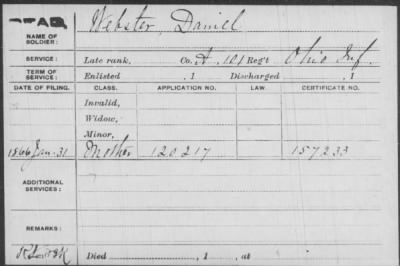 Webster, Daniel
NAME OF SOLDIER:
SERVICE: Late rank, Co. A. 101 Reg't Ohio Inf.
TERM OF SERVICE: Enlisted , 1 Discharged , 1
DATE OF FILING. CLASS. APPLICATION NO. LAW. CERTIFICATE NO.
Invalid,
Widow,
Minor,
1866 Jan. 31 Mother 120217 157233
ADDITIONAL SERVICES:
REMARKS:
Died , 1 , at